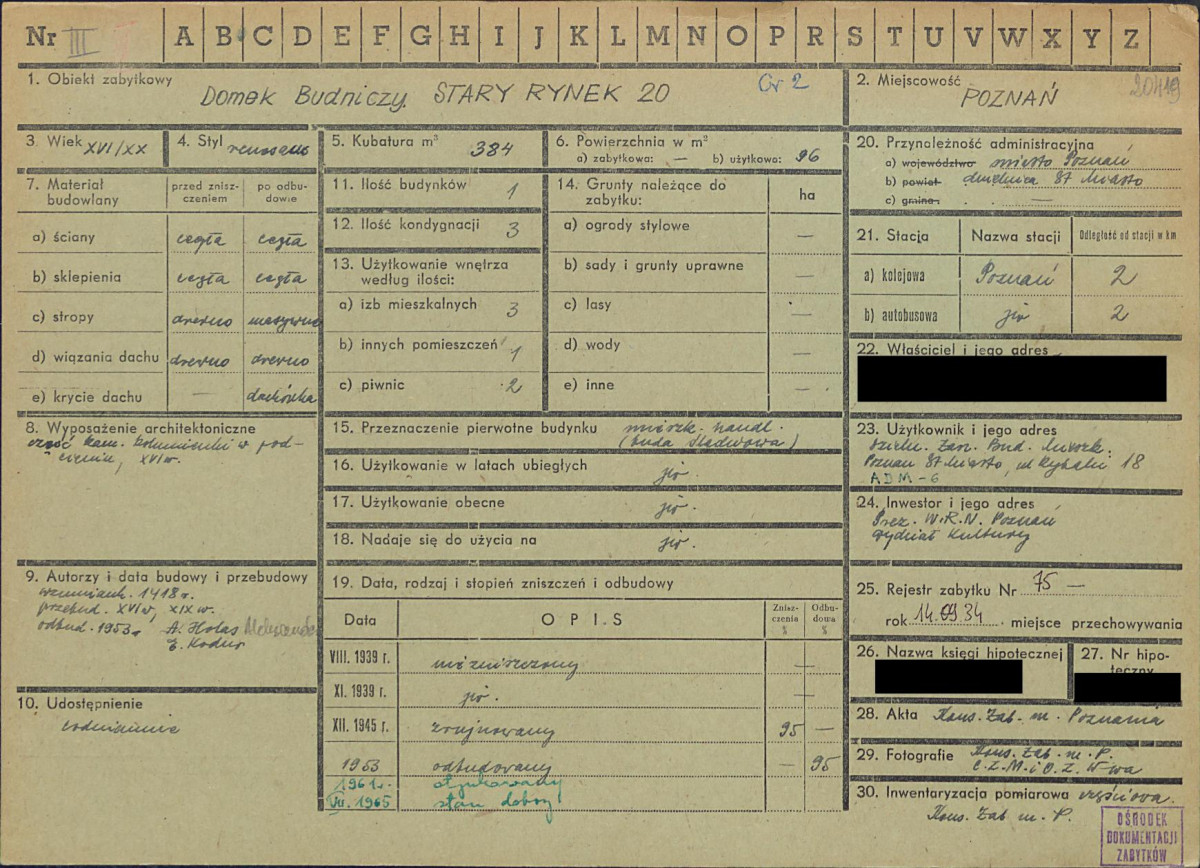 Nr III A B C D E F G H I J K L M N O P R S T U V W X Y Z
1. Obiekt zabytkowy
Domek Budniczy, STARY RYNEK 20
Gr 2
2. Miejscowość
POZNAŃ
3. Wiek XVI/XX
4. Styl renesans
5. Kubatura m³ 384
6. Powierzchnia w m²
a) zabytkowa: — b) użytkowa: 96
7. Materiał budowlany
przed zniszczeniem
po odbudowie
a) ściany cegła cegła
b) sklepienia cegła cegła
c) stropy drewno masywne
d) wiązania dachu drewno drewno
e) krycie dachu — dachówka
8. Wyposażenie architektoniczne
część kam. kolumienki w pod-
cieniu, XVI w.
9. Autorzy i data budowy i przebudowy
wzmiank. 1418 r.
przebud. XVI w, XIX w.
odbud. 1953 r A. Holas
10. Udostępnienie
codziennie
11. Ilość budynków 1
12. Ilość kondygnacji 3
13. Użytkowanie wnętrza
według ilości:
a) izb mieszkalnych 3
b) innych pomieszczeń 1
c) piwnic 2
14. Grunty należące do
zabytku:
ha
a) ogrody stylowe —
b) sady i grunty uprawne —
c) lasy —
d) wody —
e) inne —
15. Przeznaczenie pierwotne budynku mieszk. handl.
(buda śledziowa)
16. Użytkowanie w latach ubiegłych jw.
17. Użytkowanie obecne jw.
18. Nadaje się do użycia na jw.
19. Data, rodzaj i stopień zniszczeń i odbudowy
Data
OPIS
Zniszczenia %
Odbudowa %
VIII. 1939 r. niezniszczony —
XI. 1939 r. jw. —
XII. 1945 r. zrujnowany 95 —
1953 odbudowany — 95
1961 r. otynkowany
VII. 1965 stan dobry
20. Przynależność administracyjna
a) województwo miasto Poznań
b) powiat dzielnica St Miasto
c) gmina —
21. Stacja
Nazwa stacji
Odległość od stacji w km
a) kolejowa Poznań 2
b) autobusowa jw 2
22. Właściciel i jego adres
23. Użytkownik i jego adres
Zarz. Bud. Mieszk.
Poznań St Miasto, ul Rybaki 18
ADM-6
24. Inwestor i jego adres
Prez. W.R.N. Poznań
Wydział Kultury
25. Rejestr zabytku Nr 75 —
rok 14.09.34 miejsce przechowywania
26. Nazwa księgi hipotecznej
27. Nr hipoteczny
28. Akta Kons. Zab. m. Poznania
29. Fotografie Kons. Zab. m. P.
C.Z.M.i O.Z. W-wa
30. Inwentaryzacja pomiarowa częściowa.
Kons. Zab m. P.
OŚRODEK
DOKUMENTACJI
ZABYTKÓW